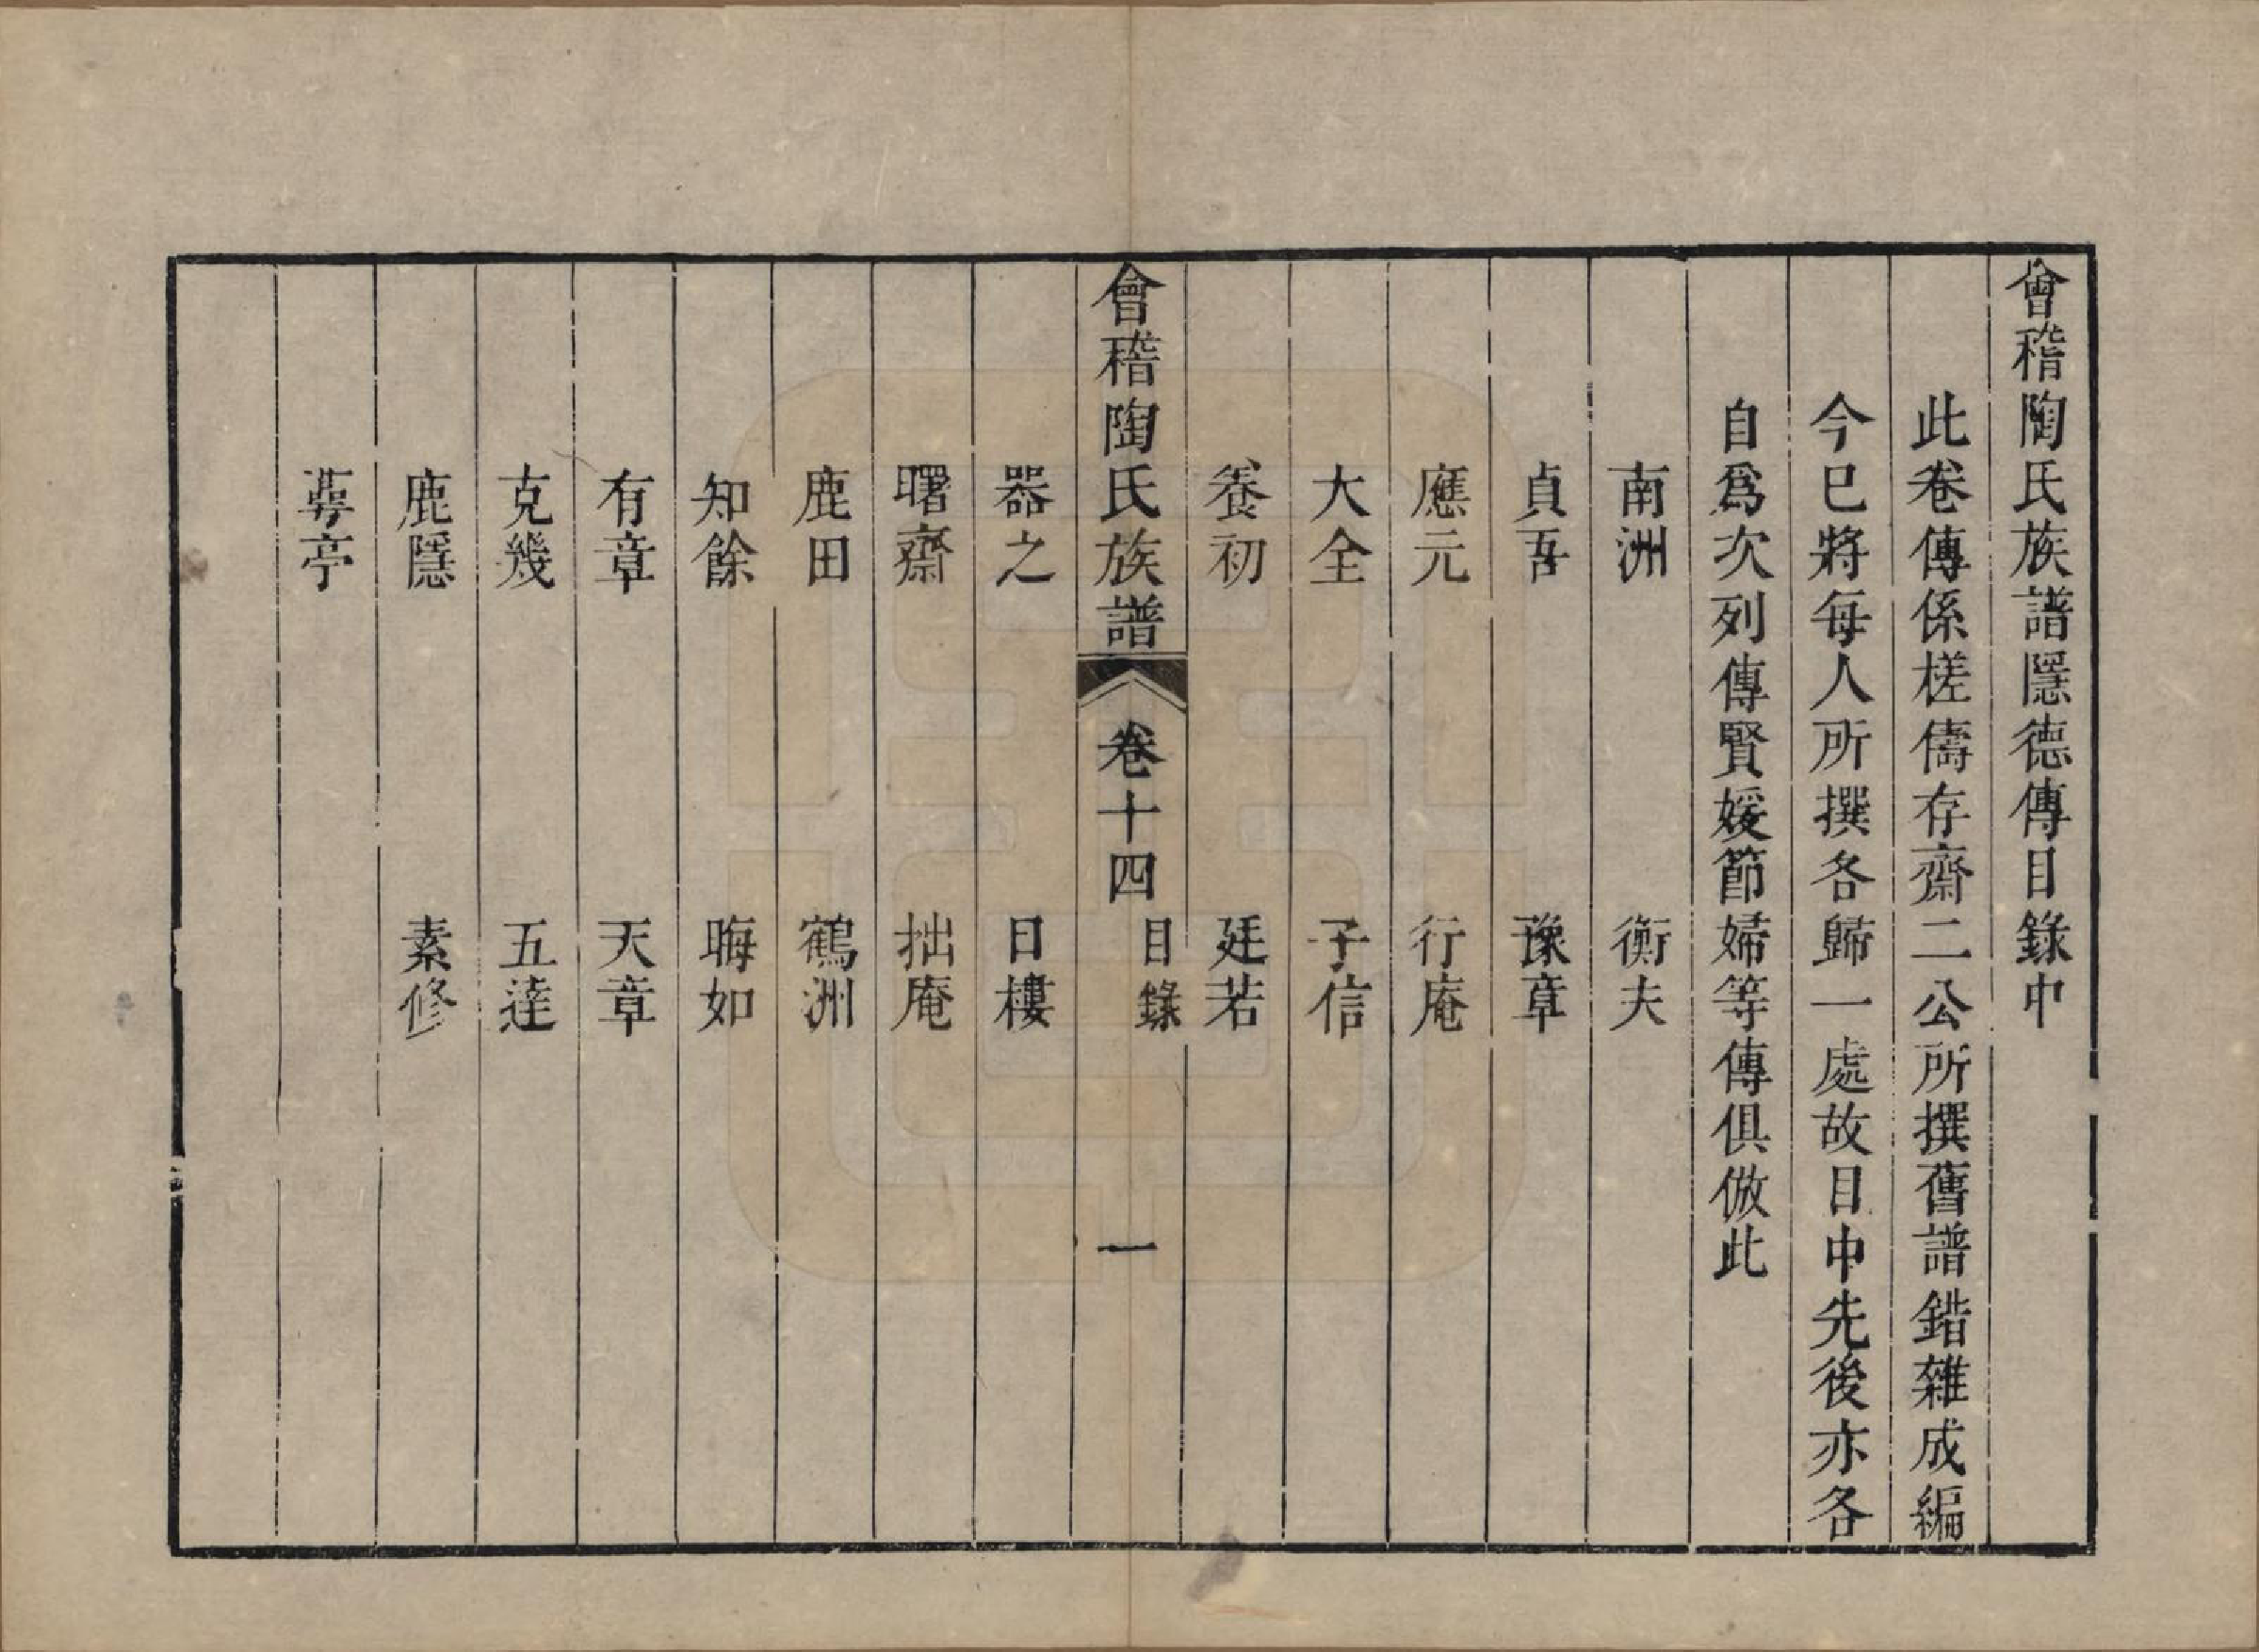 會稽陶氏族譜隱德傳目錄中
此卷傳係槎儔存齋二公所撰舊譜錯雜成編
今已將每人所撰各歸一處故目中先後亦各
自爲次列傳賢媛節婦等傳俱倣此
南洲 衡夫
貞吾 豫章
應元 行庵
大全 子信
養初 廷若
會稽陶氏族譜 卷十四 目錄 一
器之 日樓
曙齋 拙庵
鹿田 鶴洲
知餘 晦如
有章 天章
克幾 五達
鹿隱 素修
蓴亭